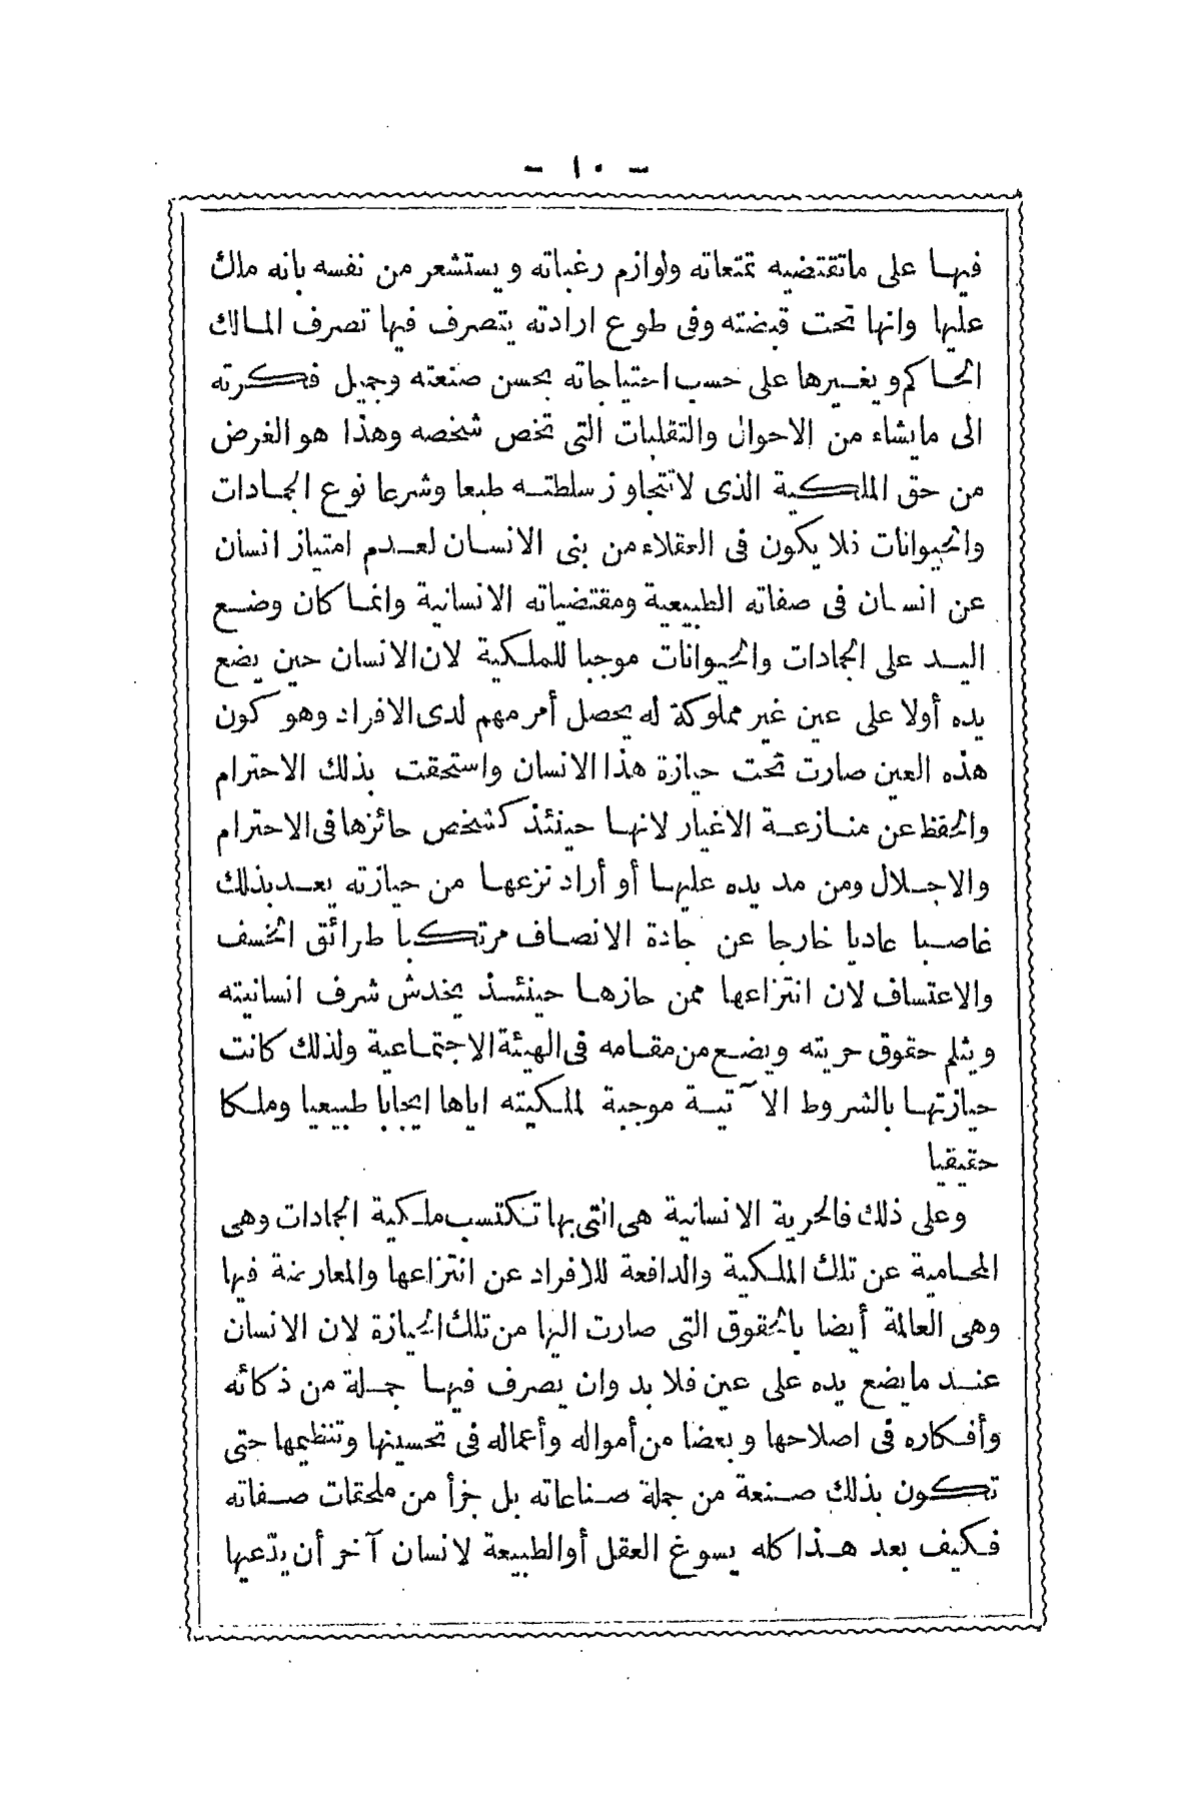 - ١٠ -
فيها على ماتقتضيه تمتعاته ولوازم رغباته ويستشعر من نفسه بانه ملك
عليها وانها تحت قبضته وفى طوع ارادته يتصرف فيها تصرف المالك
الحاكم ويغيرها على حسب احتياجاته بحسن صنعته وجميل فكرته
الى مايشاء من الاحوال والتقلبات التى تخص شخصه وهذا هو الغرض
من حق الملكية الذى لاتتجاوز سلطته طبعا وشرعا نوع الجمادات
والحيوانات فلا يكون فى العقلاء من بنى الانسان لعدم امتياز انسان
عن انسان فى صفاته الطبيعية ومقتضياته الانسانية وانما كان وضع
اليد على الجمادات والحيوانات موجبا للملكية لان الانسان حين يضع
يده أولا على عين غير مملوكة له يحصل أمر مهم لدى الافراد وهو كون
هذه العين صارت تحت حيازة هذا الانسان واستحقت بذلك الاحترام
والحفظ عن منازعة الاغيار لانها حينئذ كشخص حائزها فى الاحترام
والاجلال ومن مد يده عليها أو أراد نزعها من حيازته يعد بذلك
غاصبا عاديا خارجا عن جادة الانصاف مرتكبا طرائق الخسف
والاعتساف لان انتزاعها ممن حازها حينئذ يخدش شرف انسانيته
ويثلم حقوق حريته ويضع من مقامه فى الهيئة الاجتماعية ولذلك كانت
حيازتها بالشروط الآتية موجبة لملكيته اياها ايجابا طبيعيا وملكا
حقيقيا
وعلى ذلك فالحرية الانسانية هى التى بها تكتسب ملكية الجمادات وهى
المحامية عن تلك الملكية والدافعة للافراد عن انتزاعها والمعارضة فيها
وهى العالمة أيضا بالحقوق التى صارت اليها من تلك الحيازة لان الانسان
عند مايضع يده على عين فلا بد وان يصرف فيها جملة من ذكائه
وأفكاره فى اصلاحها وبعضا من أمواله وأعماله فى تحسينها وتنظيمها حتى
تكون بذلك صنعة من جملة صناعاته بل جزأ من ملحقات صفاته
فكيف بعد هذا كله يسوغ العقل أوالطبيعة لانسان آخر أن يدّعيها